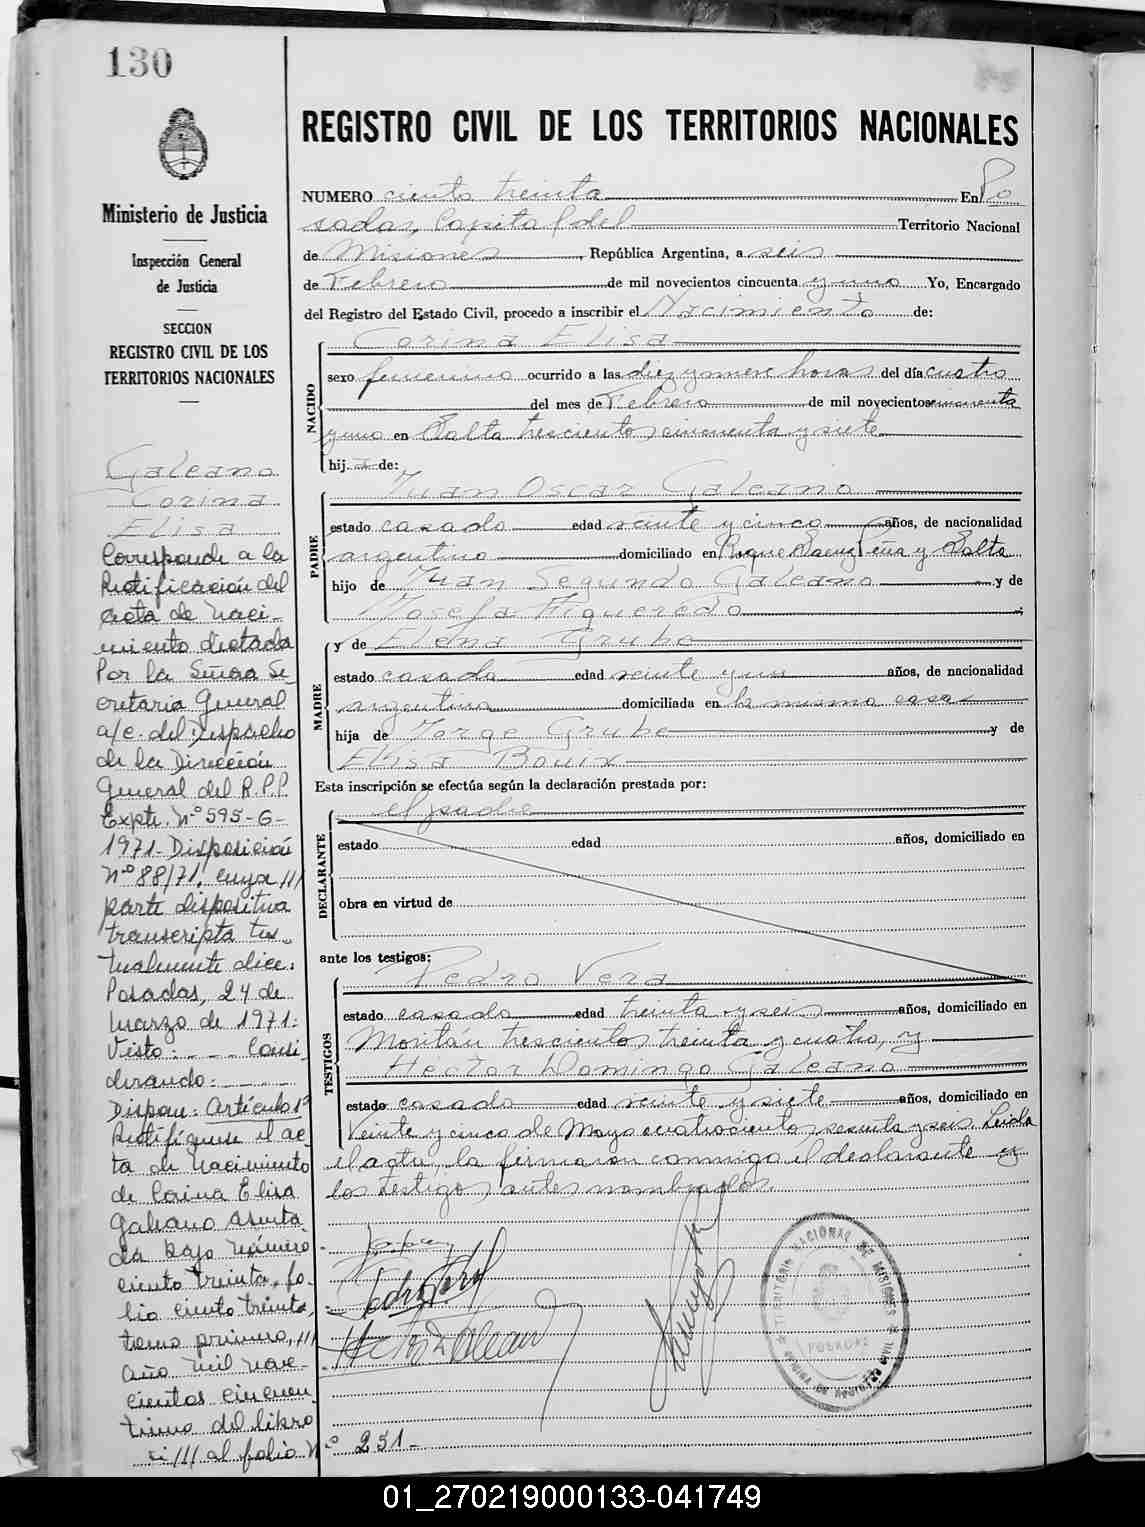 130
Ministerio de Justicia
Inspección General
de Justicia
SECCION
REGISTRO CIVIL DE LOS
TERRITORIOS NACIONALES
Galeano
Corina
Elisa
Corresponde a la
Rectificación del
acta de naci-
miento dictada
Por la Señora Se
cretaria General
a/c. del Despacho
de la Dirección
General del R.P.P.
Expte. Nº 595-G-
1971- Disposición
Nº 88/71, cuya ///
parte dispositiva
transcripta tex-
tualmente dice:
Posadas, 24 de
marzo de 1971:
Visto: - - - Consi
derando: - - - -
Dispone: Artículo 1º
Rectifíquese el ac
ta de nacimiento
de Corina Elisa
Galeano asenta
da bajo número
ciento treinta, fo-
lio ciento treinta,
tomo primero, ///
año mil nove-
cientos cincuen
tiuno del libro
///al folio Nº 251-
REGISTRO CIVIL DE LOS TERRITORIOS NACIONALES
NUMERO ciento treinta En Po
sadas, Capital del Territorio Nacional
de Misiones, República Argentina, a seis
de Febrero de mil novecientos cincuenta y uno Yo, Encargado
del Registro del Estado Civil, procedo a inscribir el Nacimiento de:
NACIDO
Corina Elisa
sexo femenino ocurrido a las diez y nueve horas del día cuatro
del mes de Febrero de mil novecientos cincuenta
y uno en Salta trescientos cincuenta y siete
hija de:
PADRE
Juan Oscar Galeano
estado casado edad veinte y cinco años, de nacionalidad
argentino domiciliado en Roque Saenz Peña y Salta
hijo de Juan Segundo Galeano y de
Josefa Figueredo
MADRE
y de Elena Grube
estado casada edad veinte y un años, de nacionalidad
argentina domiciliada en la misma casa
hija de Jorge Grube y de
Elisa Bouix
Esta inscripción se efectúa según la declaración prestada por:
el padre
DECLARANTE
estado edad años, domiciliado en
obra en virtud de
ante los testigos:
TESTIGOS
Pedro Vera
estado casado edad treinta y seis años, domiciliado en
trescientos treinta y cuatro, y
Hector Domingo Galeano
estado casado edad veinte y siete años, domiciliado en
Veinte y cinco de Mayo cuatrocientos sesenta y seis. Leida
el acta, la firmaron conmigo el declarante y
los testigos antes nombrados.
TERRITORIO NACIONAL DE MISIONES
POSADAS
OFICINA DE REGISTRO CIVIL
01_270219000133-041749